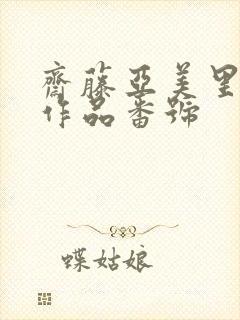 齋藤亞美里
作品番號
蝶姑娘